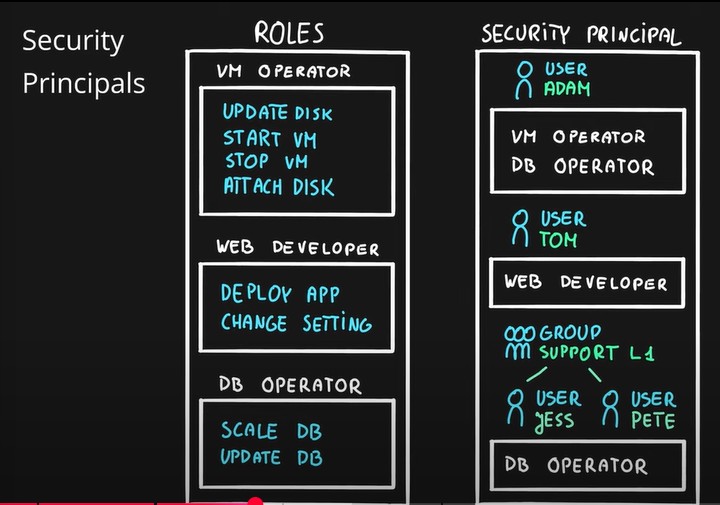 Security
Principals
ROLES
VM OPERATOR
UPDATE DISK
START VM
STOP VM
ATTACH DISK
WEB DEVELOPER
DEPLOY APP
CHANGE SETTING
DB OPERATOR
SCALE DB
UPDATE DB
SECURITY PRINCIPAL
USER
ADAM
VM OPERATOR
DB OPERATOR
USER
TOM
WEB DEVELOPER
GROUP
SUPPORT L1
USER
JESS
USER
PETE
DB OPERATOR